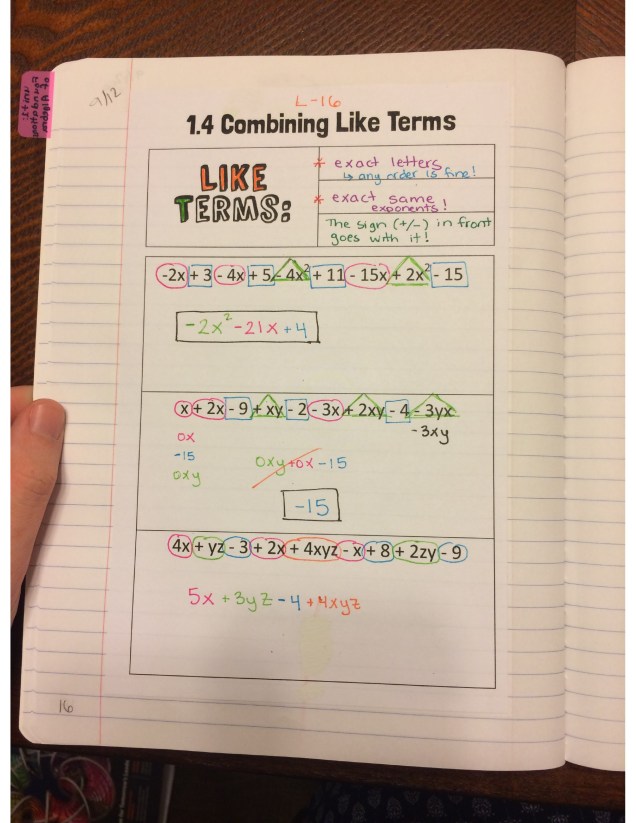 9/12
L-16
1.4 Combining Like Terms
LIKE
TERMS:
* exact letters
↳ any order is fine!
* exact same
exponents!
The sign (+/-) in front
goes with it!
-2x + 3 - 4x + 5 - 4x² + 11 - 15x + 2x² - 15
-2x² -21x +4
x + 2x - 9 + xy - 2 - 3x + 2xy - 4 - 3yx
- 3xy
0x
-15
0xy
0xy +0x -15
-15
4x + yz - 3 + 2x + 4xyz - x + 8 + 2zy - 9
5x +3yz -4 +4xyz
16